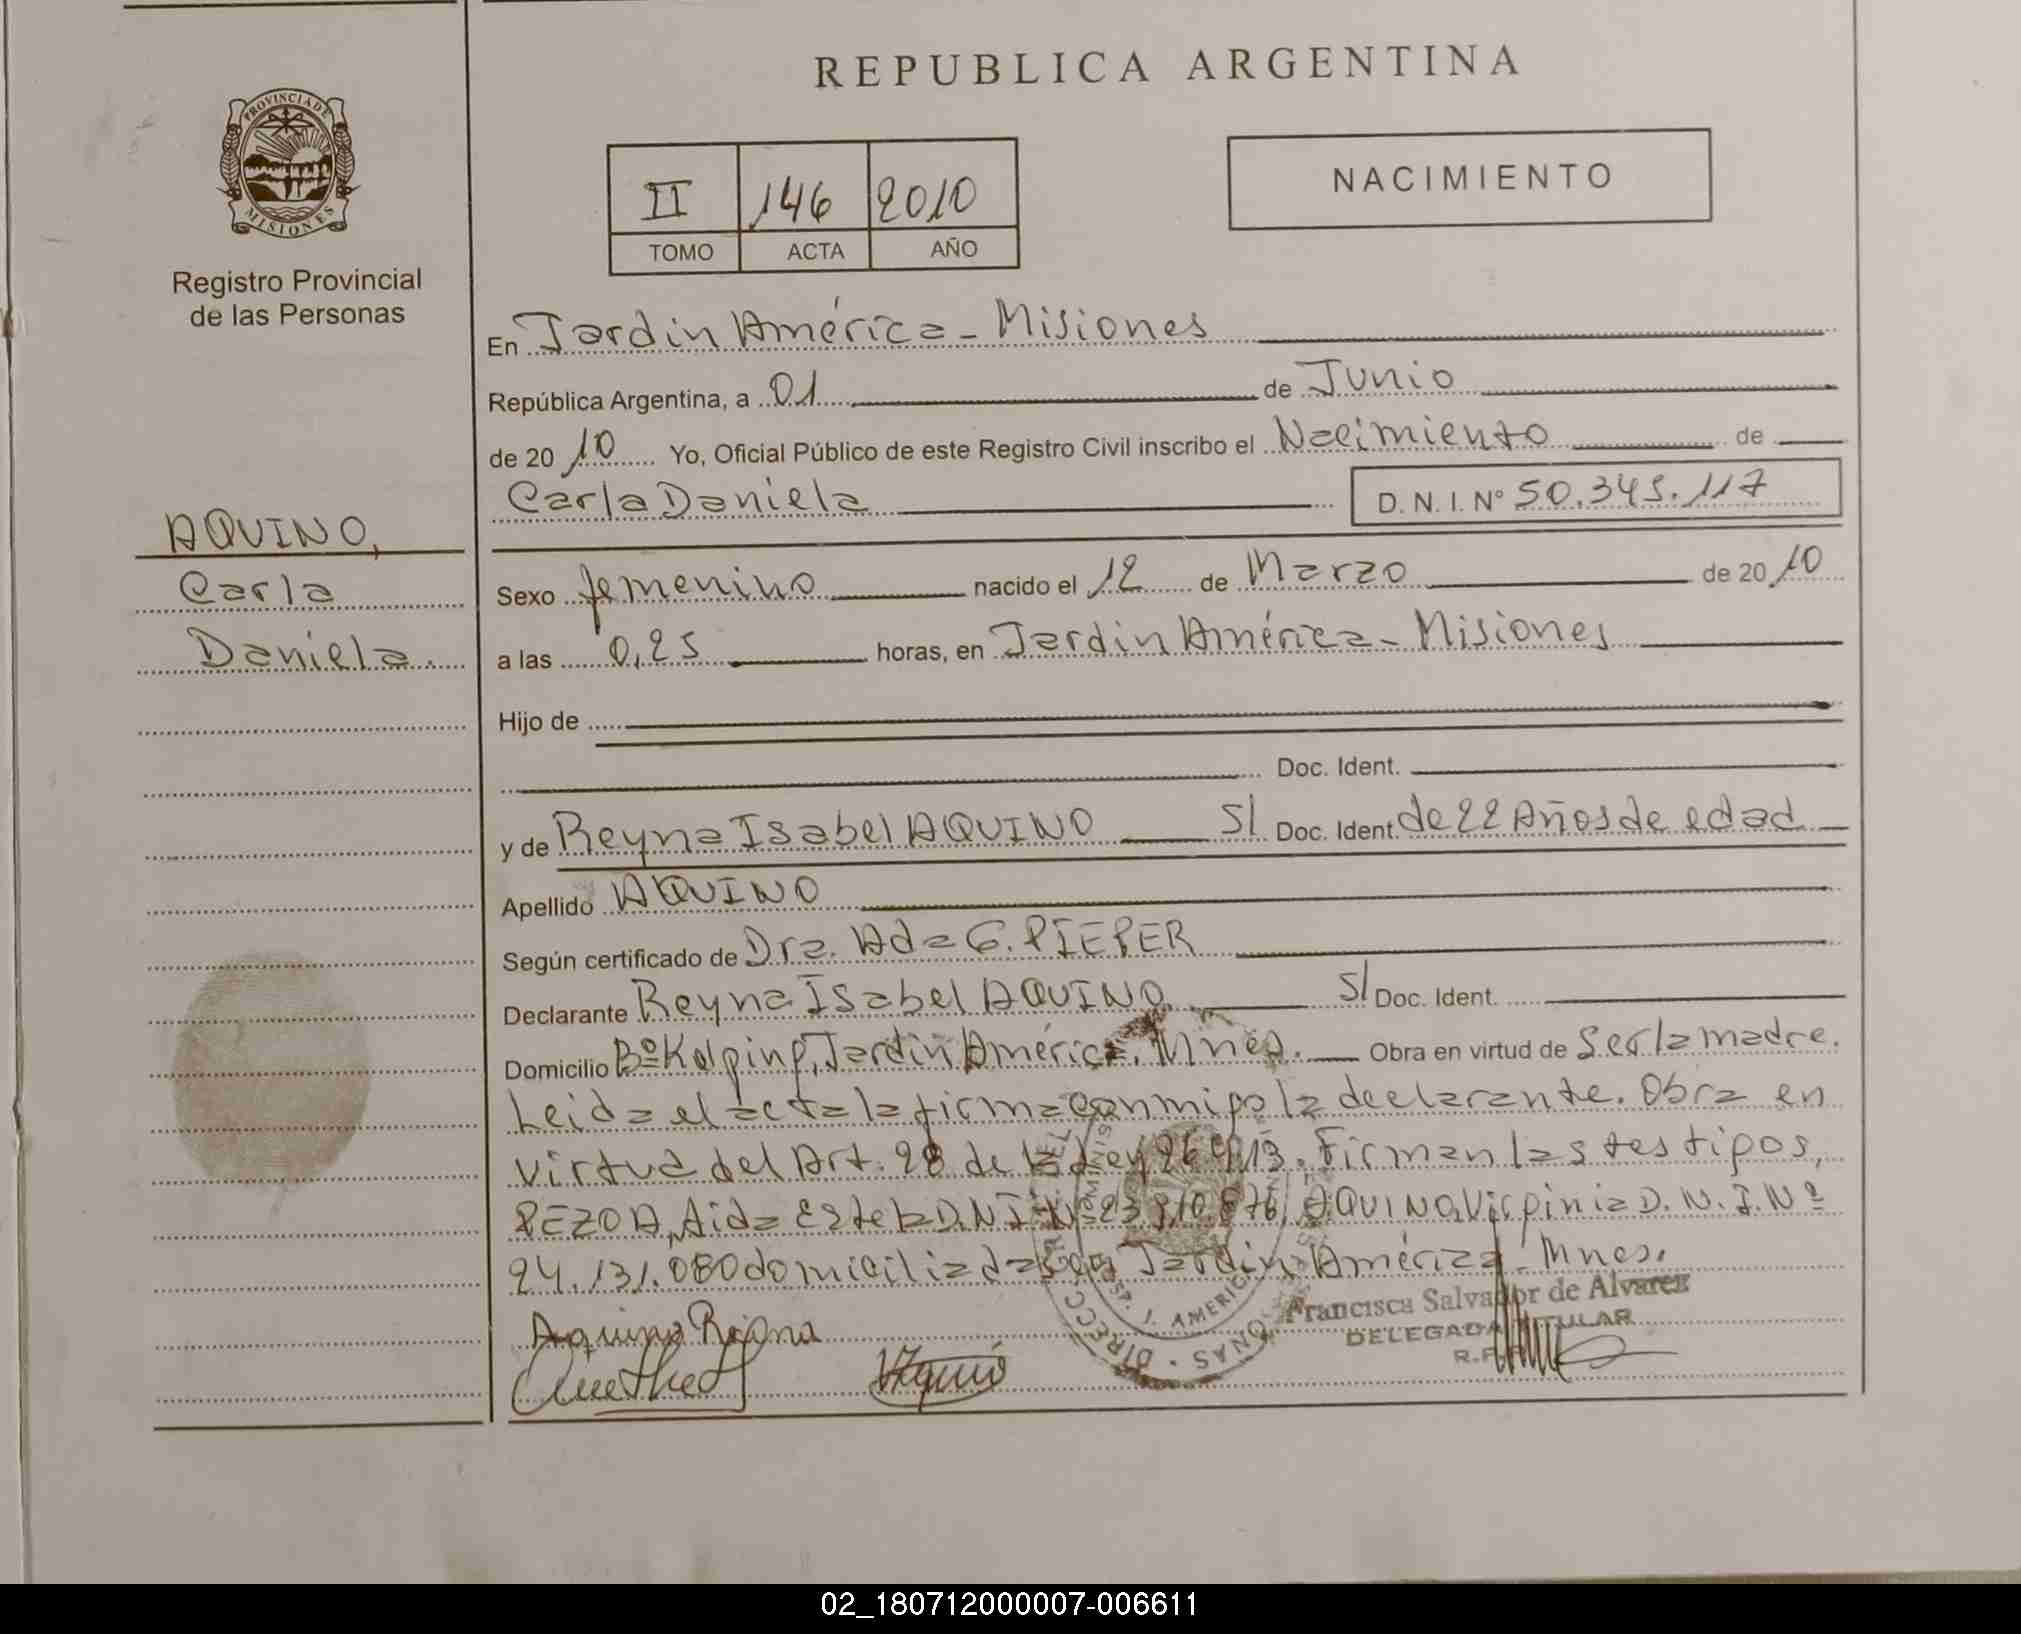 REPUBLICA ARGENTINA
PROVINCIA DE MISIONES
Registro Provincial
de las Personas
II 146 2010
TOMO ACTA AÑO
NACIMIENTO
AQUINO,
Carla
Daniela.
En Jardin América - Misiones
República Argentina, a 01 de Junio
de 20 10 Yo, Oficial Público de este Registro Civil inscribo el Nacimiento de
Carla Daniela D. N. I. N° 50.345.117
Sexo femenino nacido el 12 de Marzo de 20 10
a las 0,25 horas, en Jardin América - Misiones
Hijo de
Doc. Ident.
y de Reyna Isabel AQUINO S/ Doc. Ident. de 22 Años de edad
Apellido AQUINO
Según certificado de Dra. Ada G. PIEPER
Declarante Reyna Isabel AQUINO S/ Doc. Ident.
Domicilio Bº Kolping, Jardin América. Mnes. Obra en virtud de Ser la madre.
Leida el acta la firma conmigo la declarante. Obra en
virtud del Art. 28 de la Ley 26.413. Firman las testigos,
PEZOA, Aida Estela D.N.I. Nº 23.810.876, AQUINO, Virginia D.N.I. Nº
24.131.080 domiciliadas en Jardin América - Mnes.
Francisca Salvador de Alvarez
DELEGADA TITULAR
Aquino Reina
02_180712000007-006611